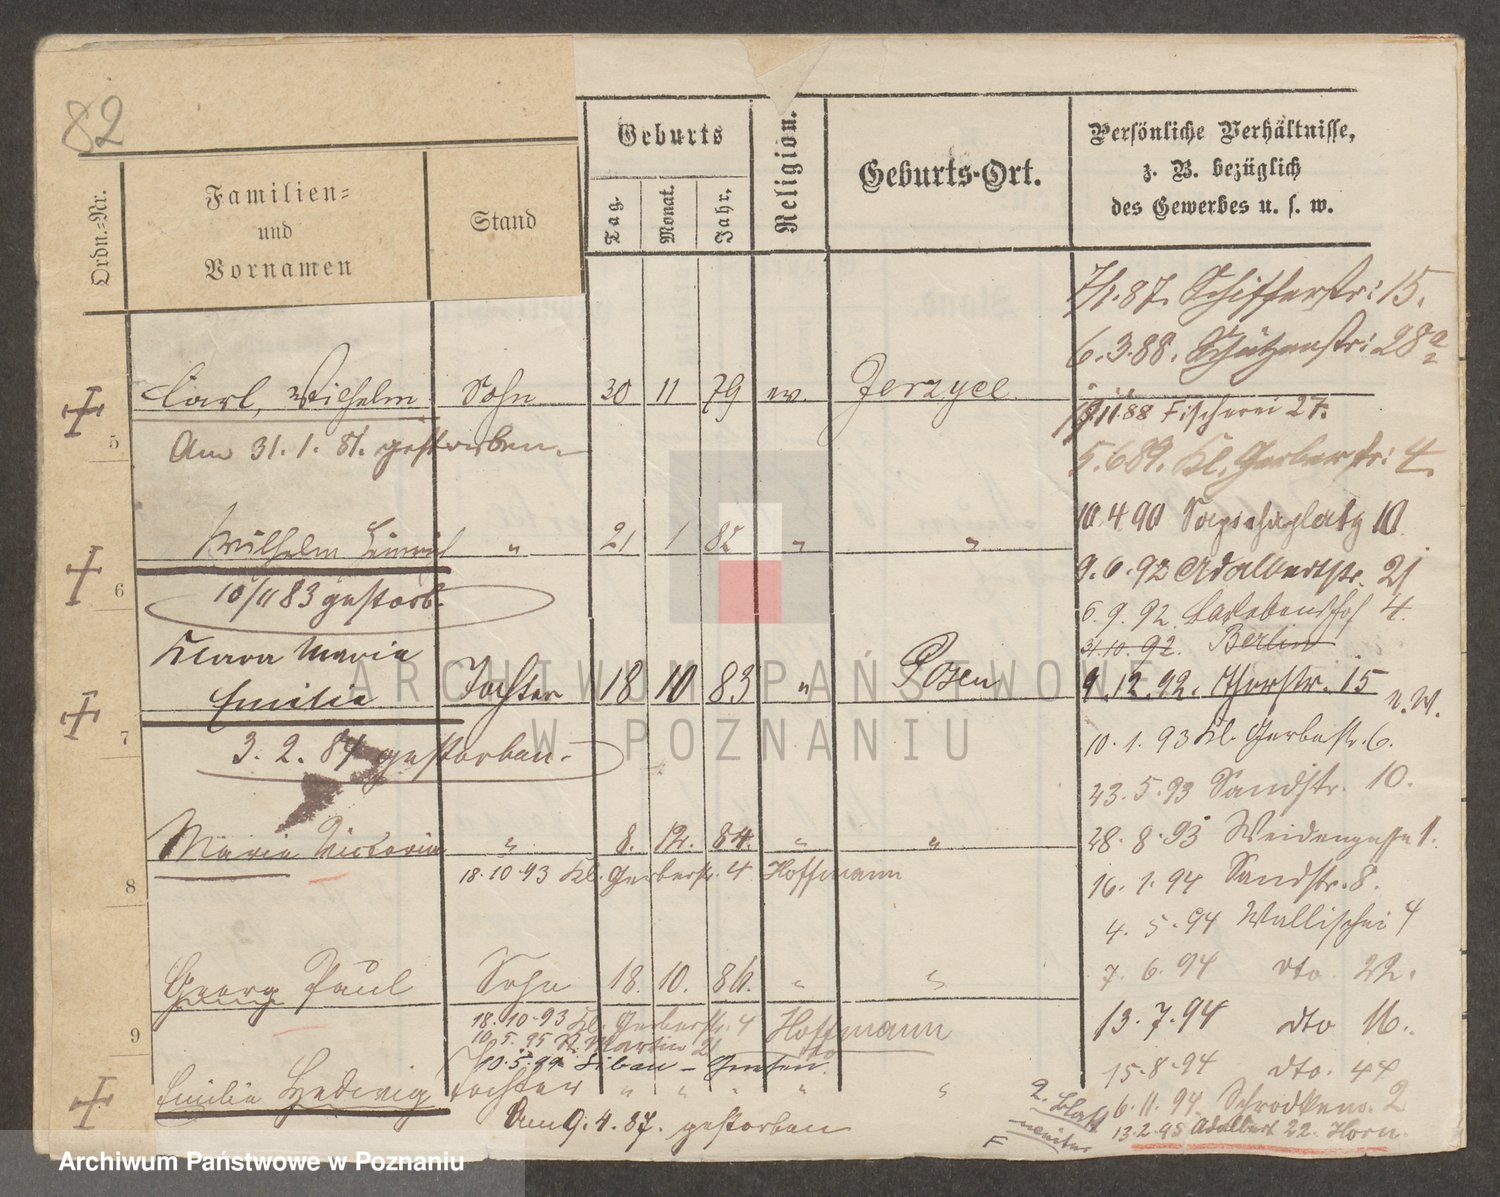 82
Ordn.-Nr.
Familien=
und
Vornamen
Stand
Geburts
Tag.
Monat.
Jahr.
Religion.
Geburts-Ort.
Persönliche Verhältnisse,
z. B. bezüglich
des Gewerbes u. s. w.
7/1.87. Schifferstr: 15.
6.3.88. Schützenstr: 28a
5
Carl, Wilhelm Sohn 30 11 79 ev. Jerzyce
Am 31.1.81. gestorben.
11.88 Fischerei 27.
5.6 89. Kl. Gerberstr: 4.
6
Wilhelm Heinrich " 21 1 82 " "
10/11 83 gestorb.
10.4 90 Sapiehaplatz 10
9.6.92 Adalbertstr. 21
6.9.92 4.
31.10.92. Berlin
7
Klara Maria
Emilie Tochter 18 10 83 " Posen
3.2.84 gestorben.
9.12.92. Thorstr. 15 u. W.
10.1.93 Kl. Gerberstr. 6.
23.5.93 Sandstr. 10.
8
Maria Victoria " 8. 12. 84. " "
18.10.93 Kl. Gerberstr. 4 Hoffmann
28.8.93 Weidengasse 1.
16.1.94 Sandstr. 8.
4.5.94 Wallischei 4
9
Georg Paul Sohn 18. 10. 86. " "
18.10.93 Kl. Gerberstr. 4 Hoffmann
10.5.95 St. Martin 21 dto
10.5.99 Libau -
7.6.94 dto 22.
13.7.94 dto 16.
15.8.94 dto. 44
Emilie Hedwig Tochter " " " " "
Am 9.4.87. gestorben
2. Blatt
weiter
F
6.11.94 Schrodkam. 2
13.2.95 Adalbert 22. Horn.
ARCHIWUM PAŃSTWOWE
W POZNANIU
Archiwum Państwowe w Poznaniu